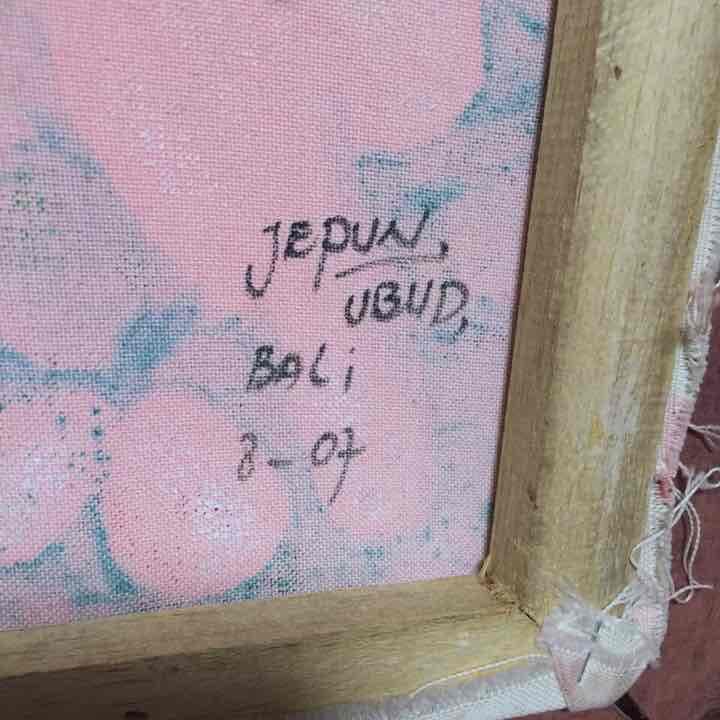 JEPUN,
UBUD,
BALi
8-07